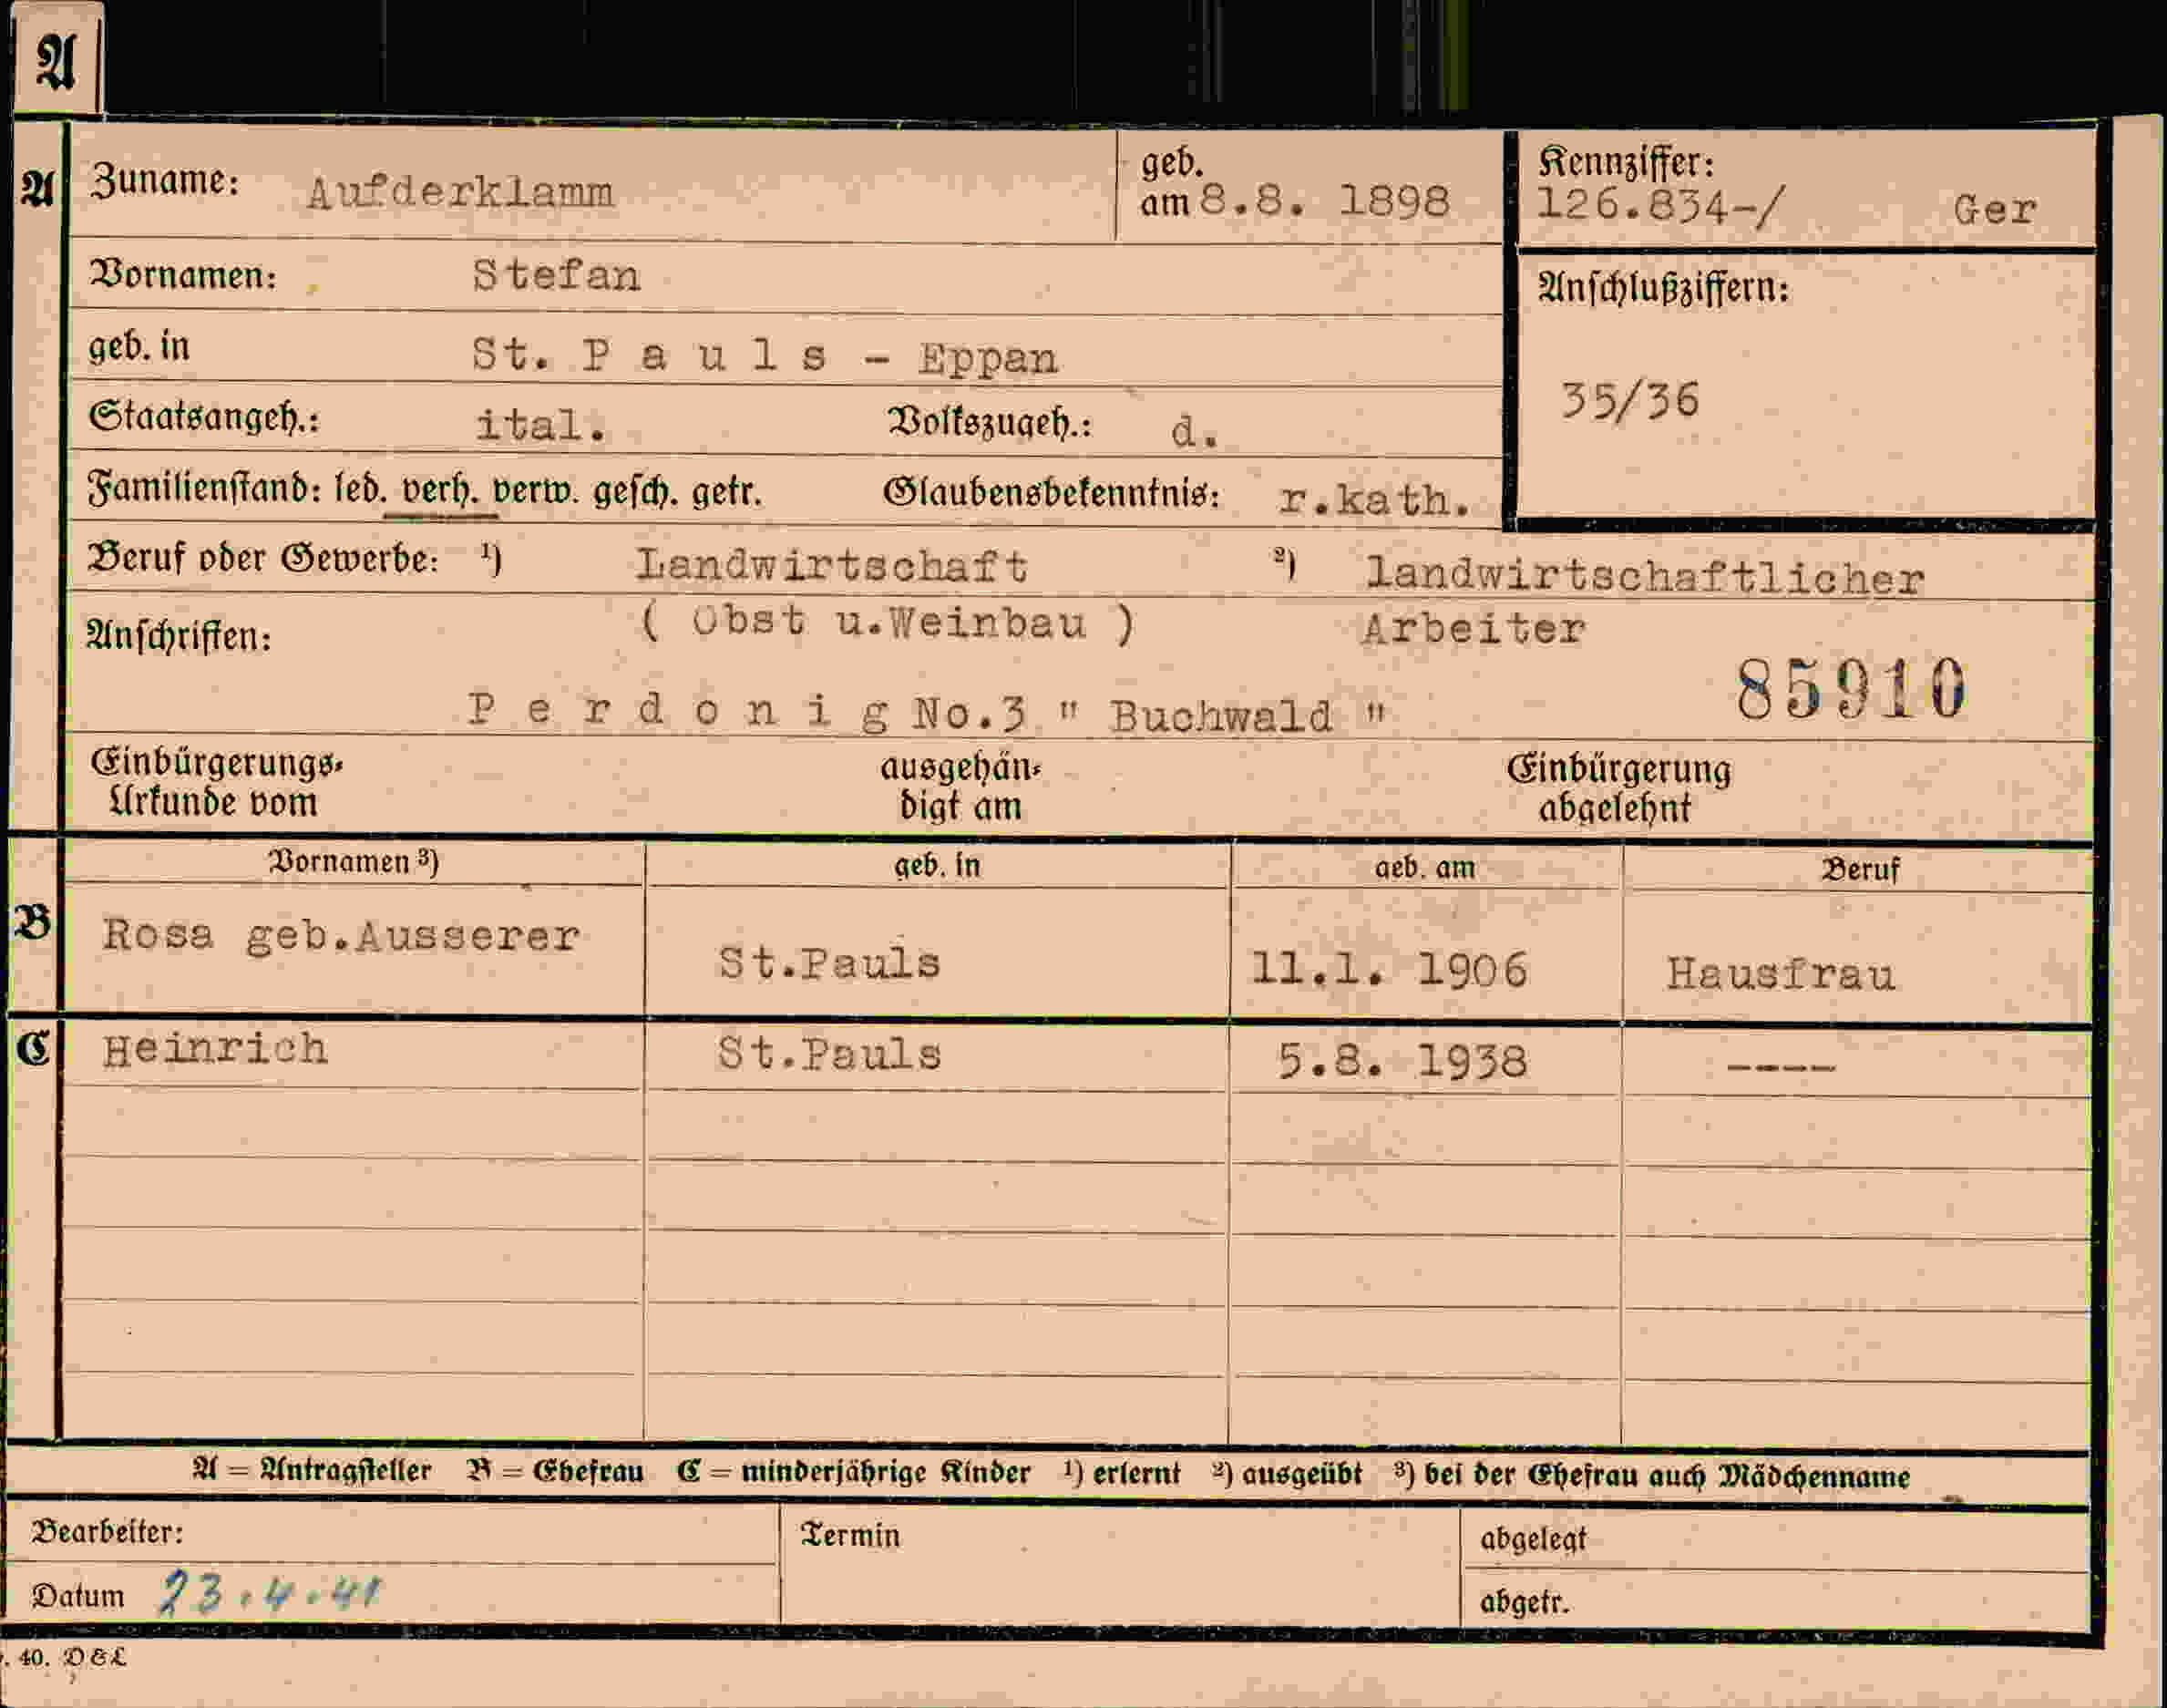 A
A Zuname: Aufderklamm geb. am 8.8. 1898 Kennziffer: 126.834-/ Ger
Vornamen: Stefan
Anschlußziffern:
geb. in St. P a u l s - Eppan
35/36
Staatsangeh.: ital. Volkszugeh.: d.
Familienstand: led. verh. verw. gesch. getr. Glaubensbekenntnis: r.kath.
Beruf oder Gewerbe: ¹) Landwirtschaft ²) landwirtschaftlicher
( Obst u.Weinbau ) Arbeiter
Anschriften:
85910
P e r d o n i g No.3 " Buchwald "
Einbürgerungs- ausgehän- Einbürgerung
Urkunde vom digt am abgelehnt
Vornamen ³) geb. in geb. am Beruf
B Rosa geb.Ausserer St.Pauls 11.1. 1906 Hausfrau
C Heinrich St.Pauls 5.8. 1938 ----
A = Antragsteller B = Ehefrau C = minderjährige Kinder ¹) erlernt ²) ausgeübt ³) bei der Ehefrau auch Mädchenname
Bearbeiter: Termin abgelegt
Datum 23.4.41 abgetr.
. 40. D&L